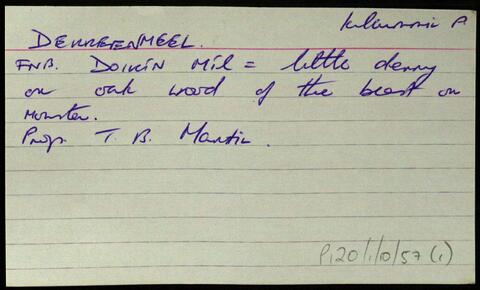 Kilcummin P
DERREENMEEL.
FNB. Doirín Míl = little derry
or oak wood of the beast or
monster.
Prop. T. B. Martin.
P120/1/10/57 (1)